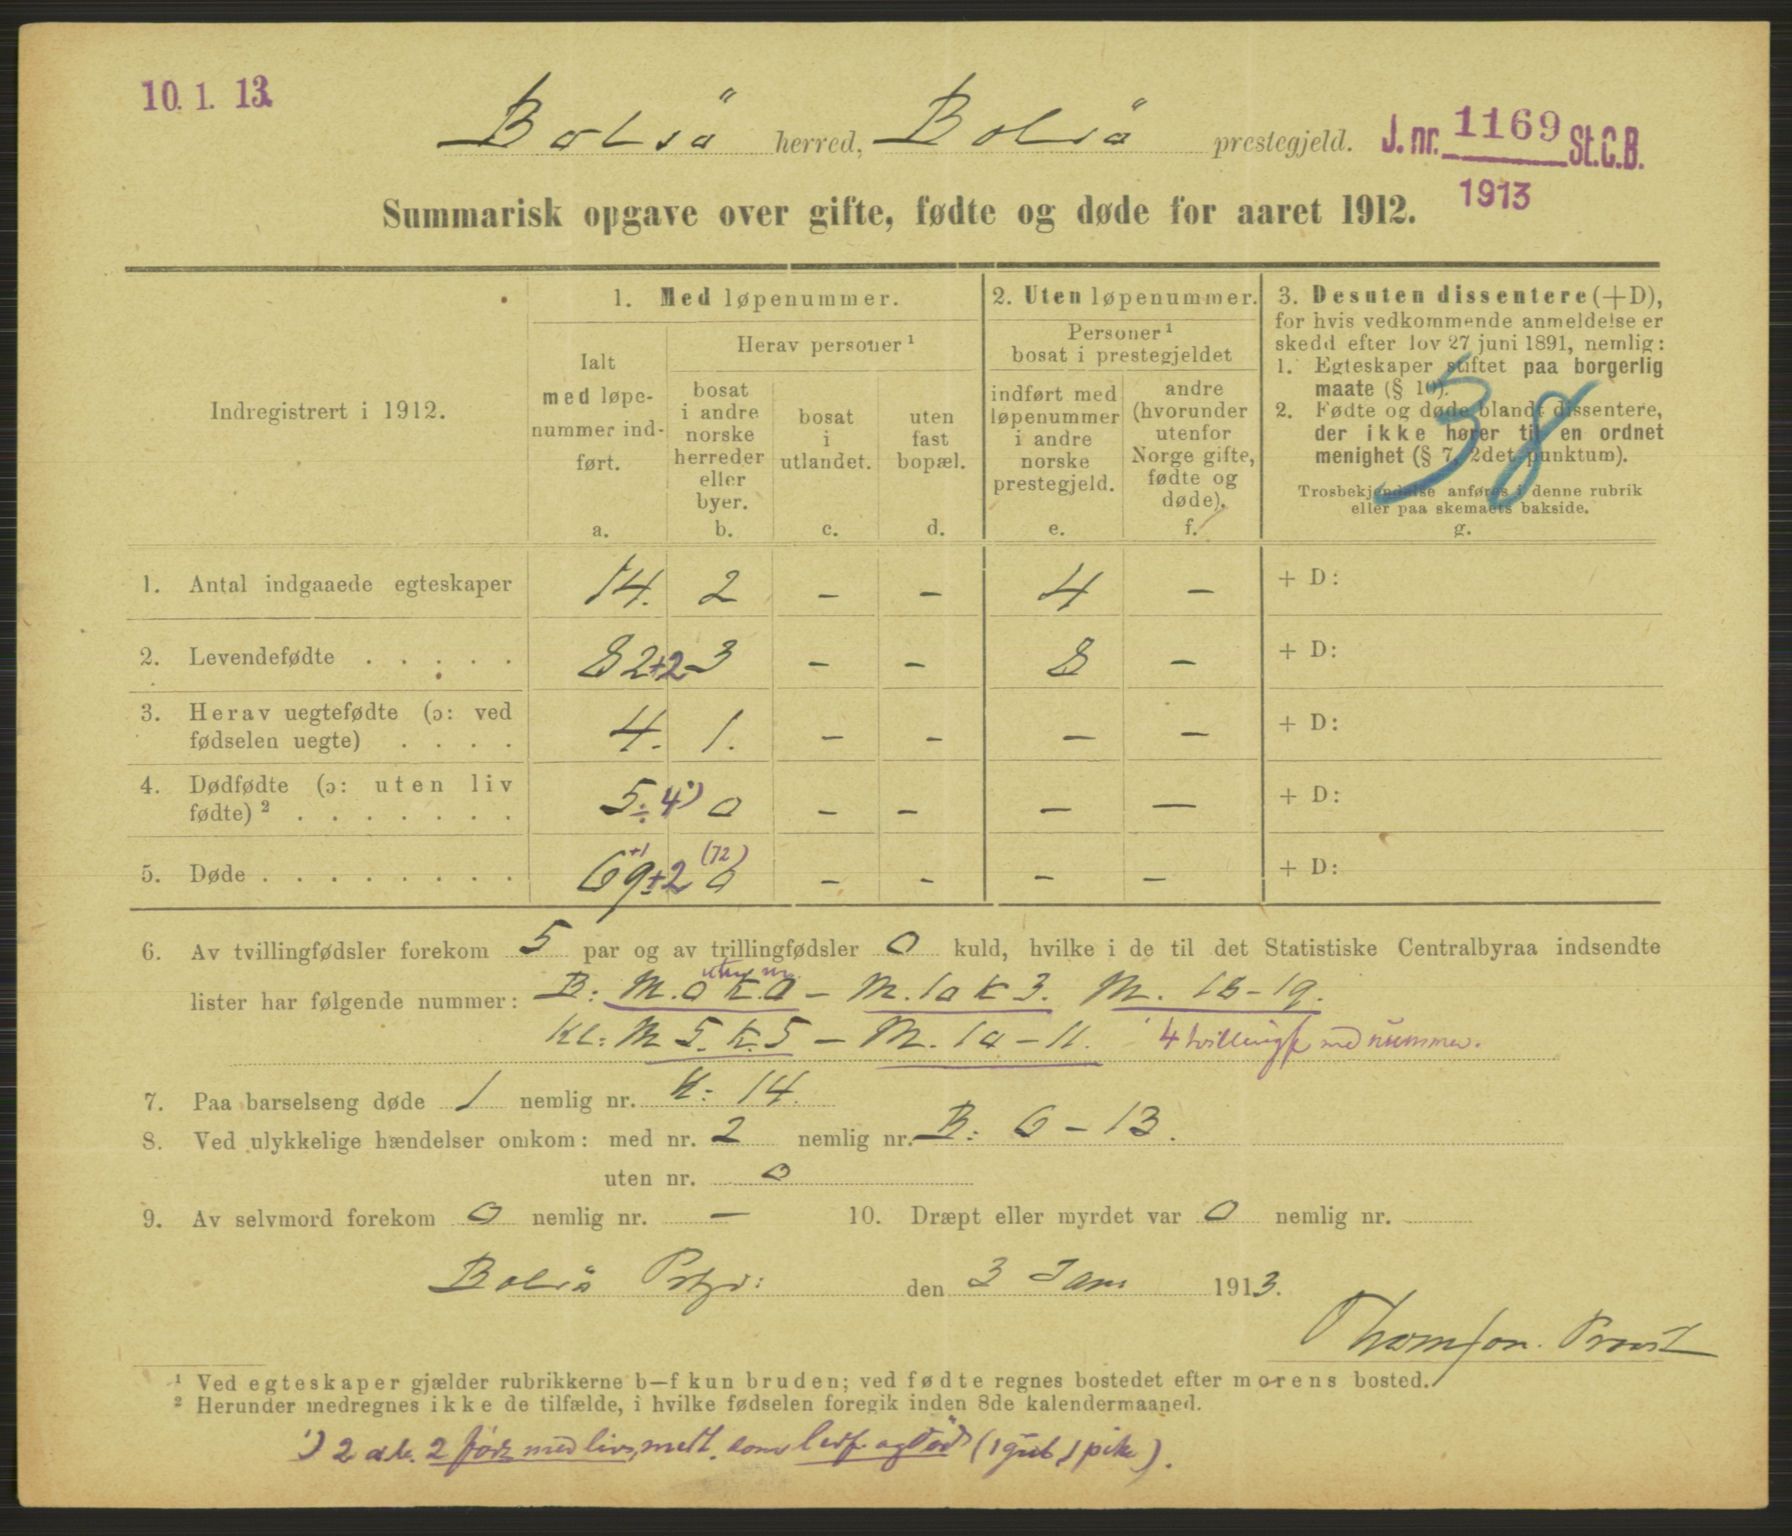 10. 1. 13.
Bolsö herred, Bolsö prestegjeld. J. nr. 1169 St.C.B.
1913
Summarisk opgave over gifte, fødte og døde for aaret 1912.
Indregistrert i 1912.
1. Med løpenummer.
Ialt
med løpe-
nummer ind-
ført.
a.
Herav personer ¹
bosat
i andre
norske
herreder
eller
byer.
b.
bosat
i
utlandet.
c.
uten
fast
bopæl.
d.
2. Uten løpenummer.
Personer ¹
bosat i prestegjeldet
indført med
løpenummer
i andre
norske
prestegjeld.
e.
andre
(hvorunder
utenfor
Norge gifte,
fødte og
døde).
f.
3. Desuten dissentere (+D),
for hvis vedkommende anmeldelse er
skedd efter lov 27 juni 1891, nemlig:
1. Egteskaper stiftet paa borgerlig
maate (§ 10).
2. Fødte og døde blandt dissentere,
der ikke hører til en ordnet
menighet (§ 7, 2det punktum).
Trosbekjendelse anføres i denne rubrik
eller paa skemaets bakside.
g.
38
1. Antal indgaaede egteskaper 14. 2 – – 4 – + D:
2. Levendefødte . . . . . 82+2 3 – – 8 – + D:
3. Herav uegtefødte (ɔ: ved
fødselen uegte) . . . . 4. 1. – – – – + D:
4. Dødfødte (ɔ: uten liv
fødte) ² . . . . . . . 5÷4¹) 0 – – – – + D:
5. Døde . . . . . . . . 69+2 +1 (72) 0 – – – – + D:
6. Av tvillingfødsler forekom 5 par og av trillingfødsler 0 kuld, hvilke i de til det Statistiske Centralbyraa indsendte
uten nr.
lister har følgende nummer: B: M.0 K.0 – M.10 K 3. M. 18–19.
Kl: M 5. K.5 – M. 10–11. 4 tvillingf med nummer.
7. Paa barselseng døde 1 nemlig nr. K: 14.
8. Ved ulykkelige hændelser omkom: med nr. 2 nemlig nr. B: 6–13.
uten nr. 0
9. Av selvmord forekom 0 nemlig nr. – 10. Dræpt eller myrdet var 0 nemlig nr.
Bolsö Prgd: den 3 Jan 1913.
Thomson. Provst
¹ Ved egteskaper gjælder rubrikkerne b–f kun bruden; ved fødte regnes bostedet efter morens bosted.
² Herunder medregnes ikke de tilfælde, i hvilke fødselen foregik inden 8de kalendermaaned.
¹) 2 2 født med liv, medt. som levf. og død (1 gut 1 pike).